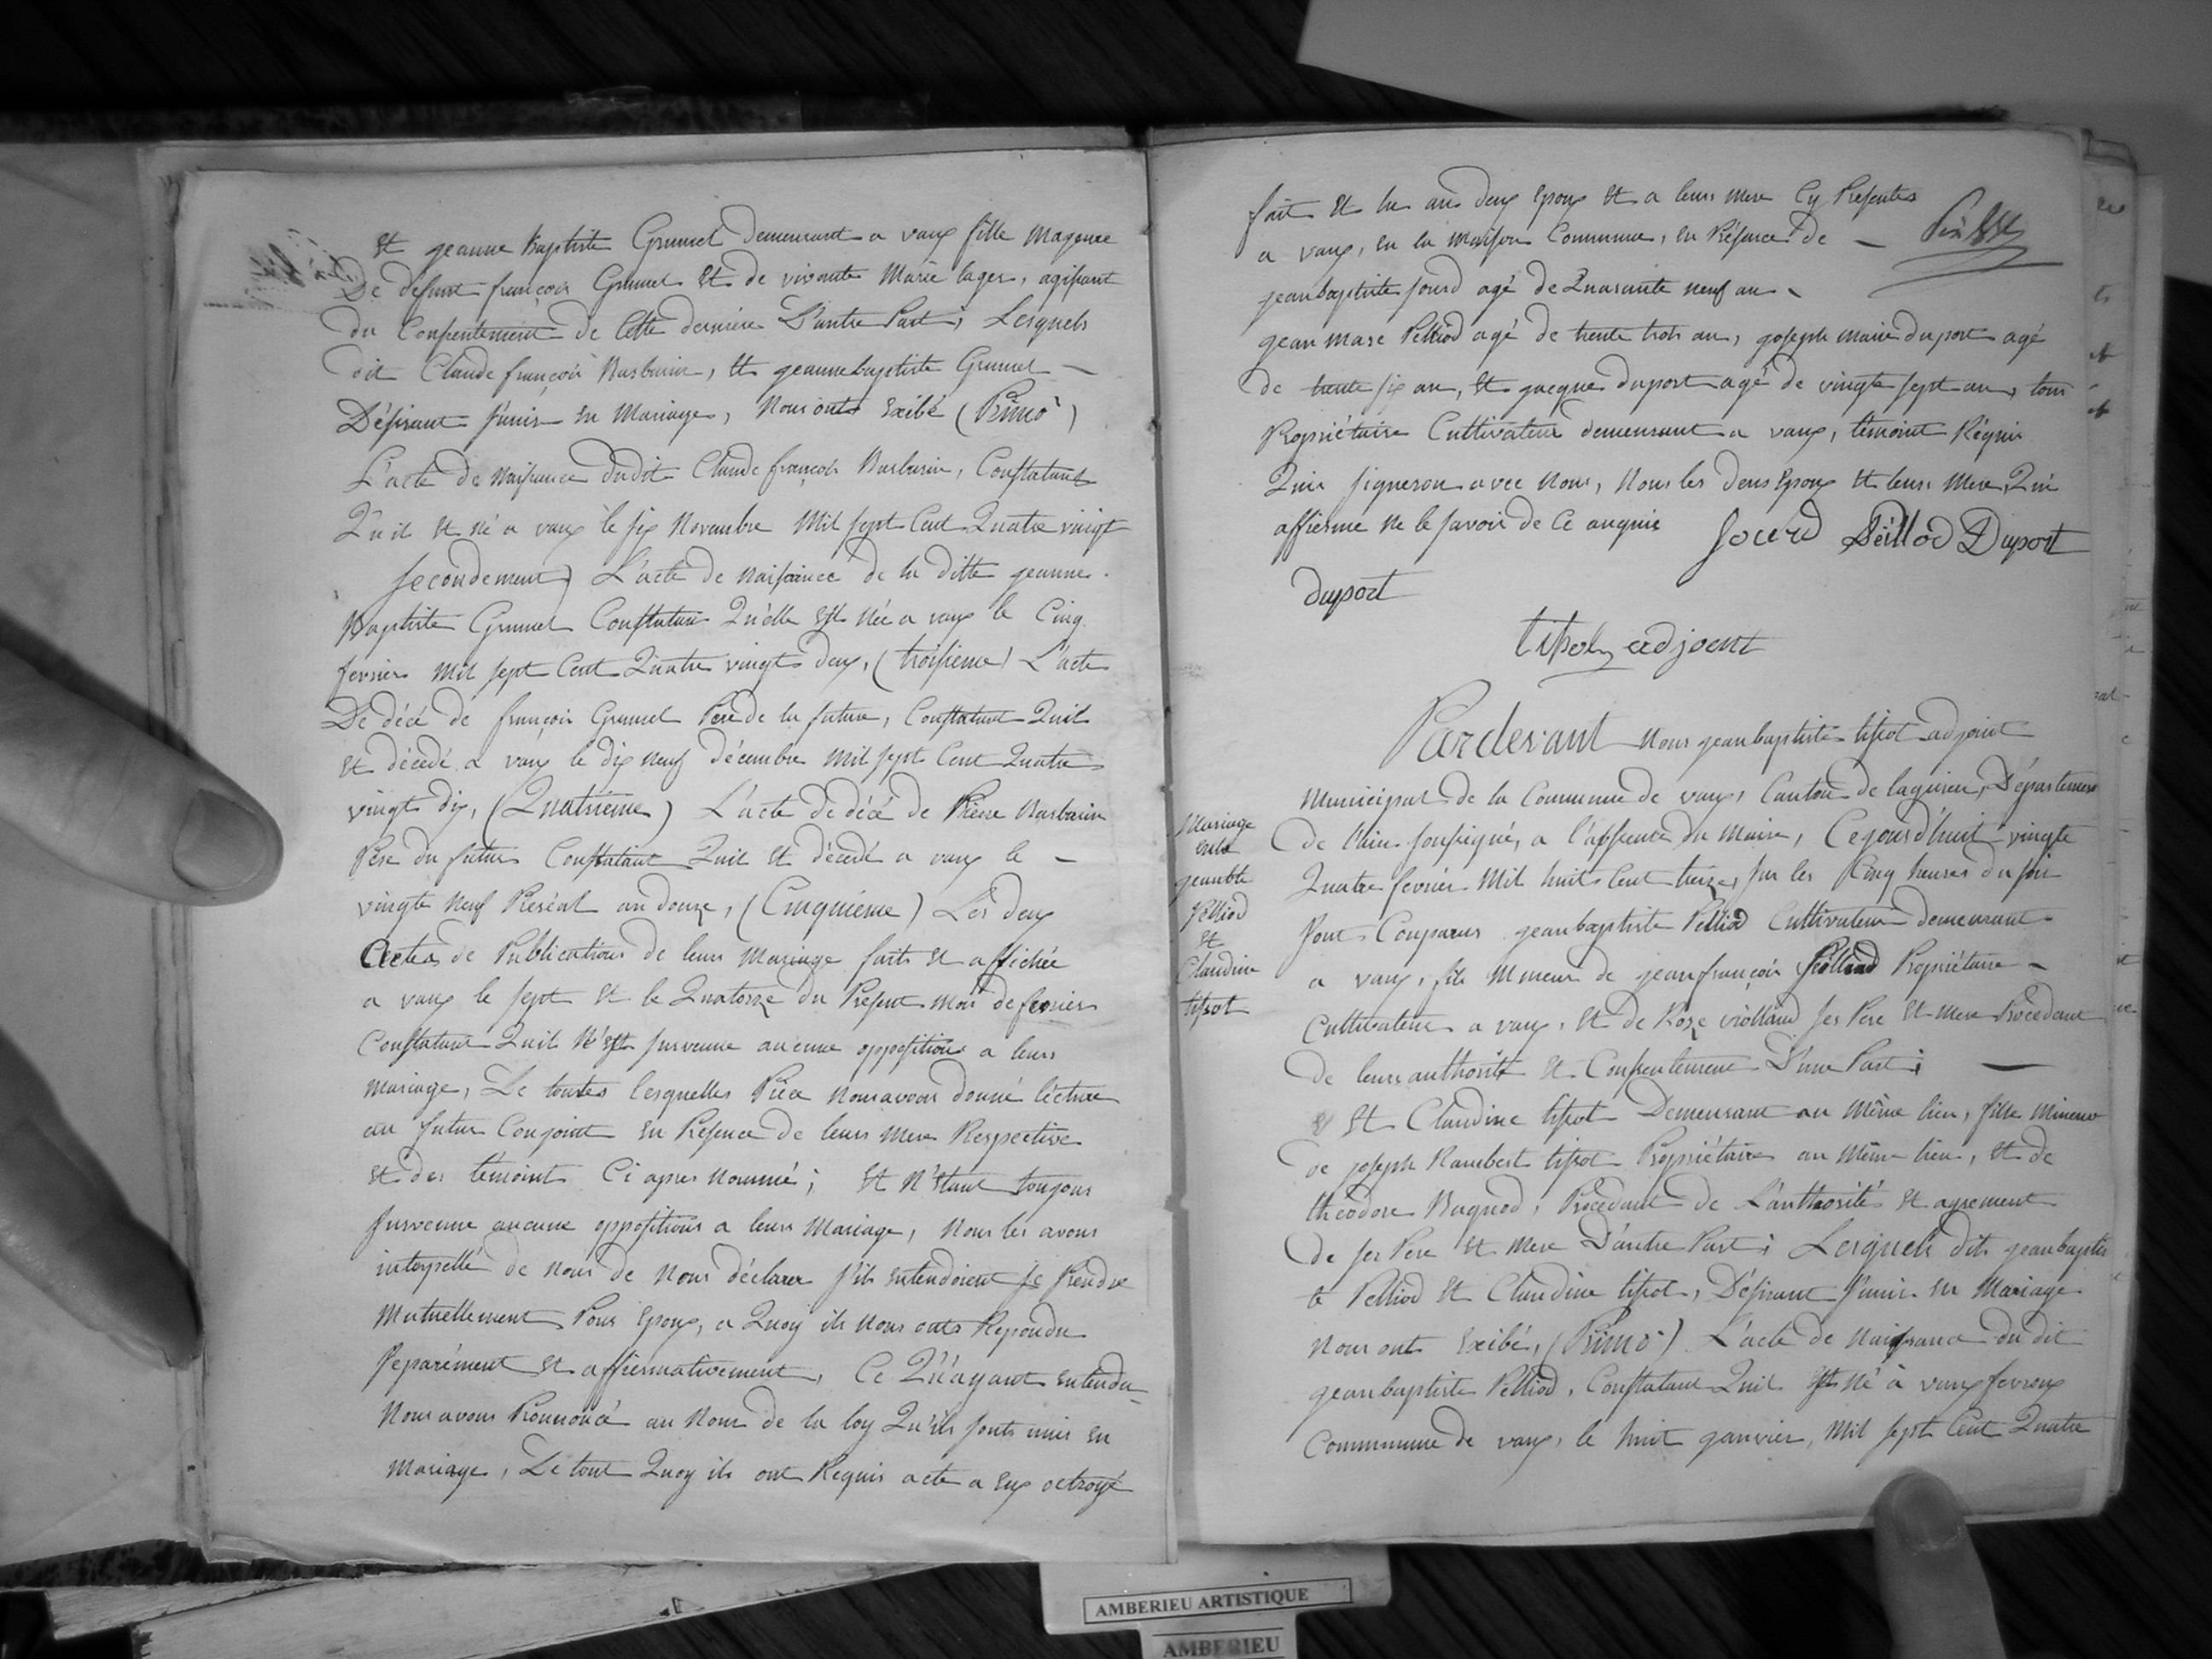 Et jeanne Baptiste Grumel demeurant a vaux fille Mageure
De defunt françois Grumel Et de vivante Marie lager, agissant
du Consentement de Cette derniere D'autre Part; Lesquels
dit Claude françois Barbarin, Et jeannebaptiste Grumel —
Désirant s'unir En Mariage, Nous onts Exibé (Primò)
L'acte de Naissance dudit Claude françois Barbarin, Constatant
Qu'il Et Né a vaux le six Novembre Mil sept Cent Quatre vingt
secondement) L'acte de Naissance de la ditte jeanne
Baptiste Grumel Constatant Qu'elle Est Née a vaux le Cinq
fevrier Mil sept Cent Quatre vingts deux, (troisieme) L'acte
De décé de françois Grumel Pere de la future, Constatant Quil
Et décédé a vaux le dix neuf décembre Mil sept Cent Quatre
vingts dix, (Quatrieme) L'acte de décé de Pierre Barbarin
Pere du futur Constatant Quil Et décédé a vaux le —
vingte neuf Preréal an douze, (Cinquieme) Les deux
Actes de Publications de leurs Mariage faits Et affichée
a vaux le sept Et le Quatorze du Present Mois de fevrier
Constatant Quil N'Est survenue aucune opposition a leurs
Mariage, De toutes lesquelles Piéce Nous avons donné léctures
au futur Conjoint En Présence de leurs Mere Respective
Et des témoint Ci apres Nommé; Et N'Etant toujours
survenue aucune oppositions a leurs Mariage, Nous les avons
interpellé de Nous de Nous déclarer s'ils Entendoient se Prendre
Mutuellement Pour Epoux, a Quoy ils Nous onts Repondu
séparément Et affiermativement, Ce Qu'ayant Entendu
Nous avons Prononcé au Nom de la loy Qu'ils sonts unis En
Mariage, De tout Quoy ils ont Requis acte a Eux octroyé
fait Et lu aus deux Epoux Et a leurs Mere Cy Présentes
a vaux, En la Maison Commune, En Présence de —
jeanbaptiste jourd agé de Quarante neuf an
jean Marc Pelliod agé de trente trois ans, joseph Marie duport agé
de trente six an, Et jacque duport agé de vingte sept an, tous
Propriétaire Cultivateur demeurant a vaux, témoint Réquis
Qui signeron avec Nous, Nous les deus Epoux Et leurs Mere, Qui
affierme Ne le savoir de Ce anquis Jourd Péillod Duport
duport
tissot adjoent
Mariage
Entre
jeanbte
Pelliod
Et
Claudine
tissot
Pardevant Nous jeanbaptiste tissot adjoint
Municipal de la Commune de vaux, Canton de lagnieu, Département
de l'Ain soussigné, a l'absence du Maire, Cejourd'huit vingte
Quatre fevrier Mil huit Cent treize, sur les Cinq heures du soir
sont Comparus jeanbaptiste Pelliod Cultivateur demeurant
a vaux, fils Mineur de jeanfrançois Péilliod Propriétaire —
Cultivateur a vaux, Et de Roze violland ses Pere Et Mere Procedant
de leurs authorité Et Consentement D'une Part; —
Et Claudine tissot Demeurant au Même lieu, fille Mineure
de joseph Rambert tissot Propriétaire au Même lieu, Et de
théodore Bugnod, Procedant de L'authorité Et agrement
de ses Pere Et Mere D'autre Part; Lesquels dits jeanbaptis
te Pelliod Et Claudine tissot, Désirant s'unir En Mariage
Nous ont Exibé, (Primò) L'acte de Naissance du dit
jeanbaptiste Pelliod, Constatant Quil Est Né à vauxfevroux
Commmune de vaux, le huit janvier, Mil sept Cent Quatre
AMBERIEU ARTISTIQUE
AMBERIEU